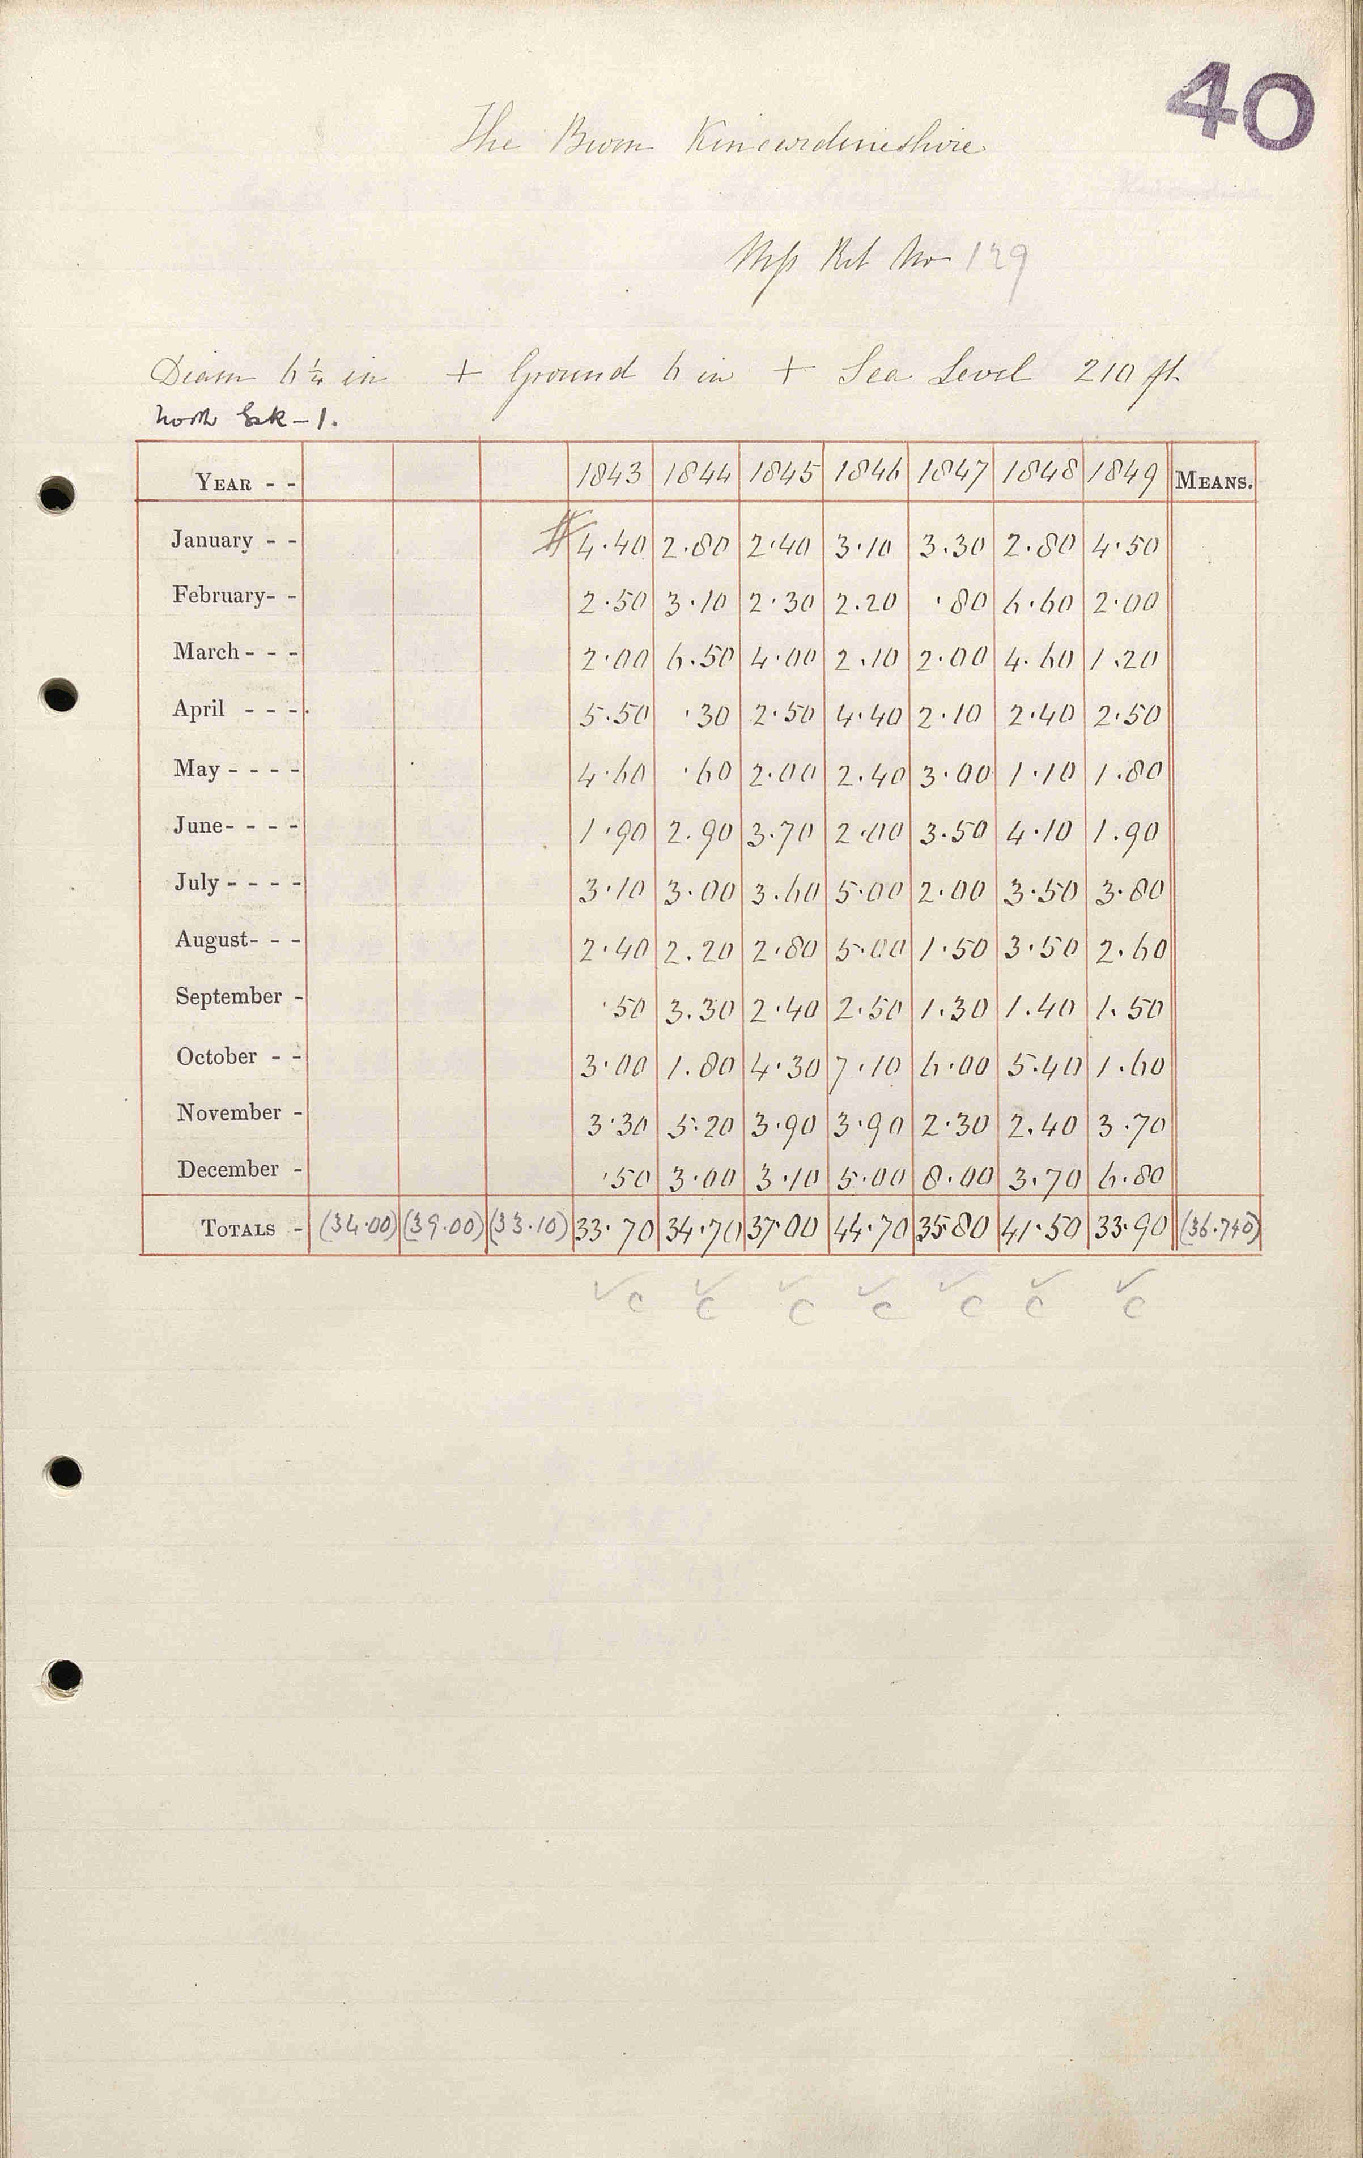 40
The Burn Kincardineshire
Mss Ret No 129
Diam 6¼ in + Ground 6 in + Sea Level 210 ft
North Esk - 1.
YEAR - - 1843 1844 1845 1846 1847 1848 1849 MEANS.
January - - 4.40 2.80 2.40 3.10 3.30 2.80 4.50
February- - 2.50 3.10 2.30 2.20 .80 6.60 2.00
March - - - 2.00 6.50 4.00 2.10 2.00 4.60 1.20
April - - - 5.50 .30 2.50 4.40 2.10 2.40 2.50
May - - - - 4.60 .60 2.00 2.40 3.00 1.10 1.80
June- - - - 1.90 2.90 3.70 2.00 3.50 4.10 1.90
July - - - - 3.10 3.00 3.60 5.00 2.00 3.50 3.80
August- - - 2.40 2.20 2.80 5.00 1.50 3.50 2.60
September - .50 3.30 2.40 2.50 1.30 1.40 1.50
October - - 3.00 1.80 4.30 7.10 6.00 5.40 1.60
November - 3.30 5.20 3.90 3.90 2.30 2.40 3.70
December - .50 3.00 3.10 5.00 8.00 3.70 6.80
TOTALS - (34.00) (39.00) (33.10) 33.70 34.70 37.00 44.70 35.80 41.50 33.90 (36.740)
✓ ✓ ✓ ✓ ✓ ✓ ✓
C C C C C C C